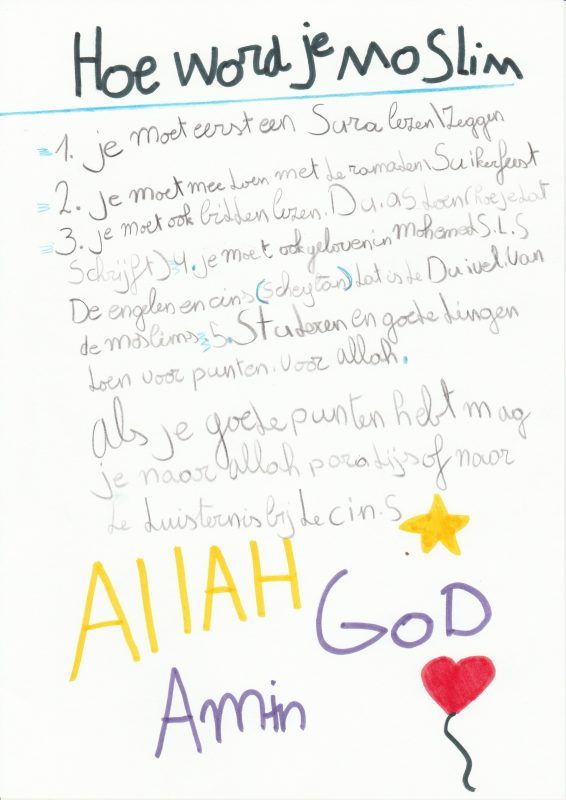 Hoe word je moslim
1. je moet eerst een Sura lezen\zeggen
2. je moet mee doen met de ramaden\Suikerfeest
3. je moet ook bidden lezen. Du.as doen (hoe je dat
schrijft) 4. je moet ook geloven in Mohemed S.L.S
De engelen en cins (Scheytan) dat is de Duivel. Van
de moslims. 5. Studeren en goede dingen
doen voor punten. voor allah.
als je goede punten hebt mag
je naar allah paradijs of naar
de duisternis bij de cin.s
AllAH
GoD
Amin